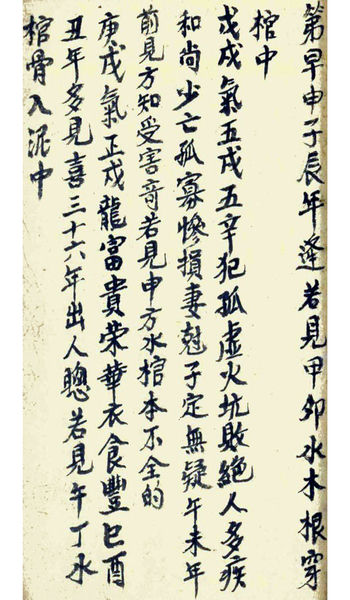 第早申子辰年逢若見甲卯水木根穿
棺中
戊戌氣五戌五辛犯孤虛火坑敗絕人多疾
和尚少亡孤寡慘損妻尅子定無疑午未年
前見方知受害奇若見申方水棺本不全的
庚戌氣正戌龍富貴荣華衣食豐巳酉
丑年多見喜三十六年出人聰若見午丁水
棺骨入泥中